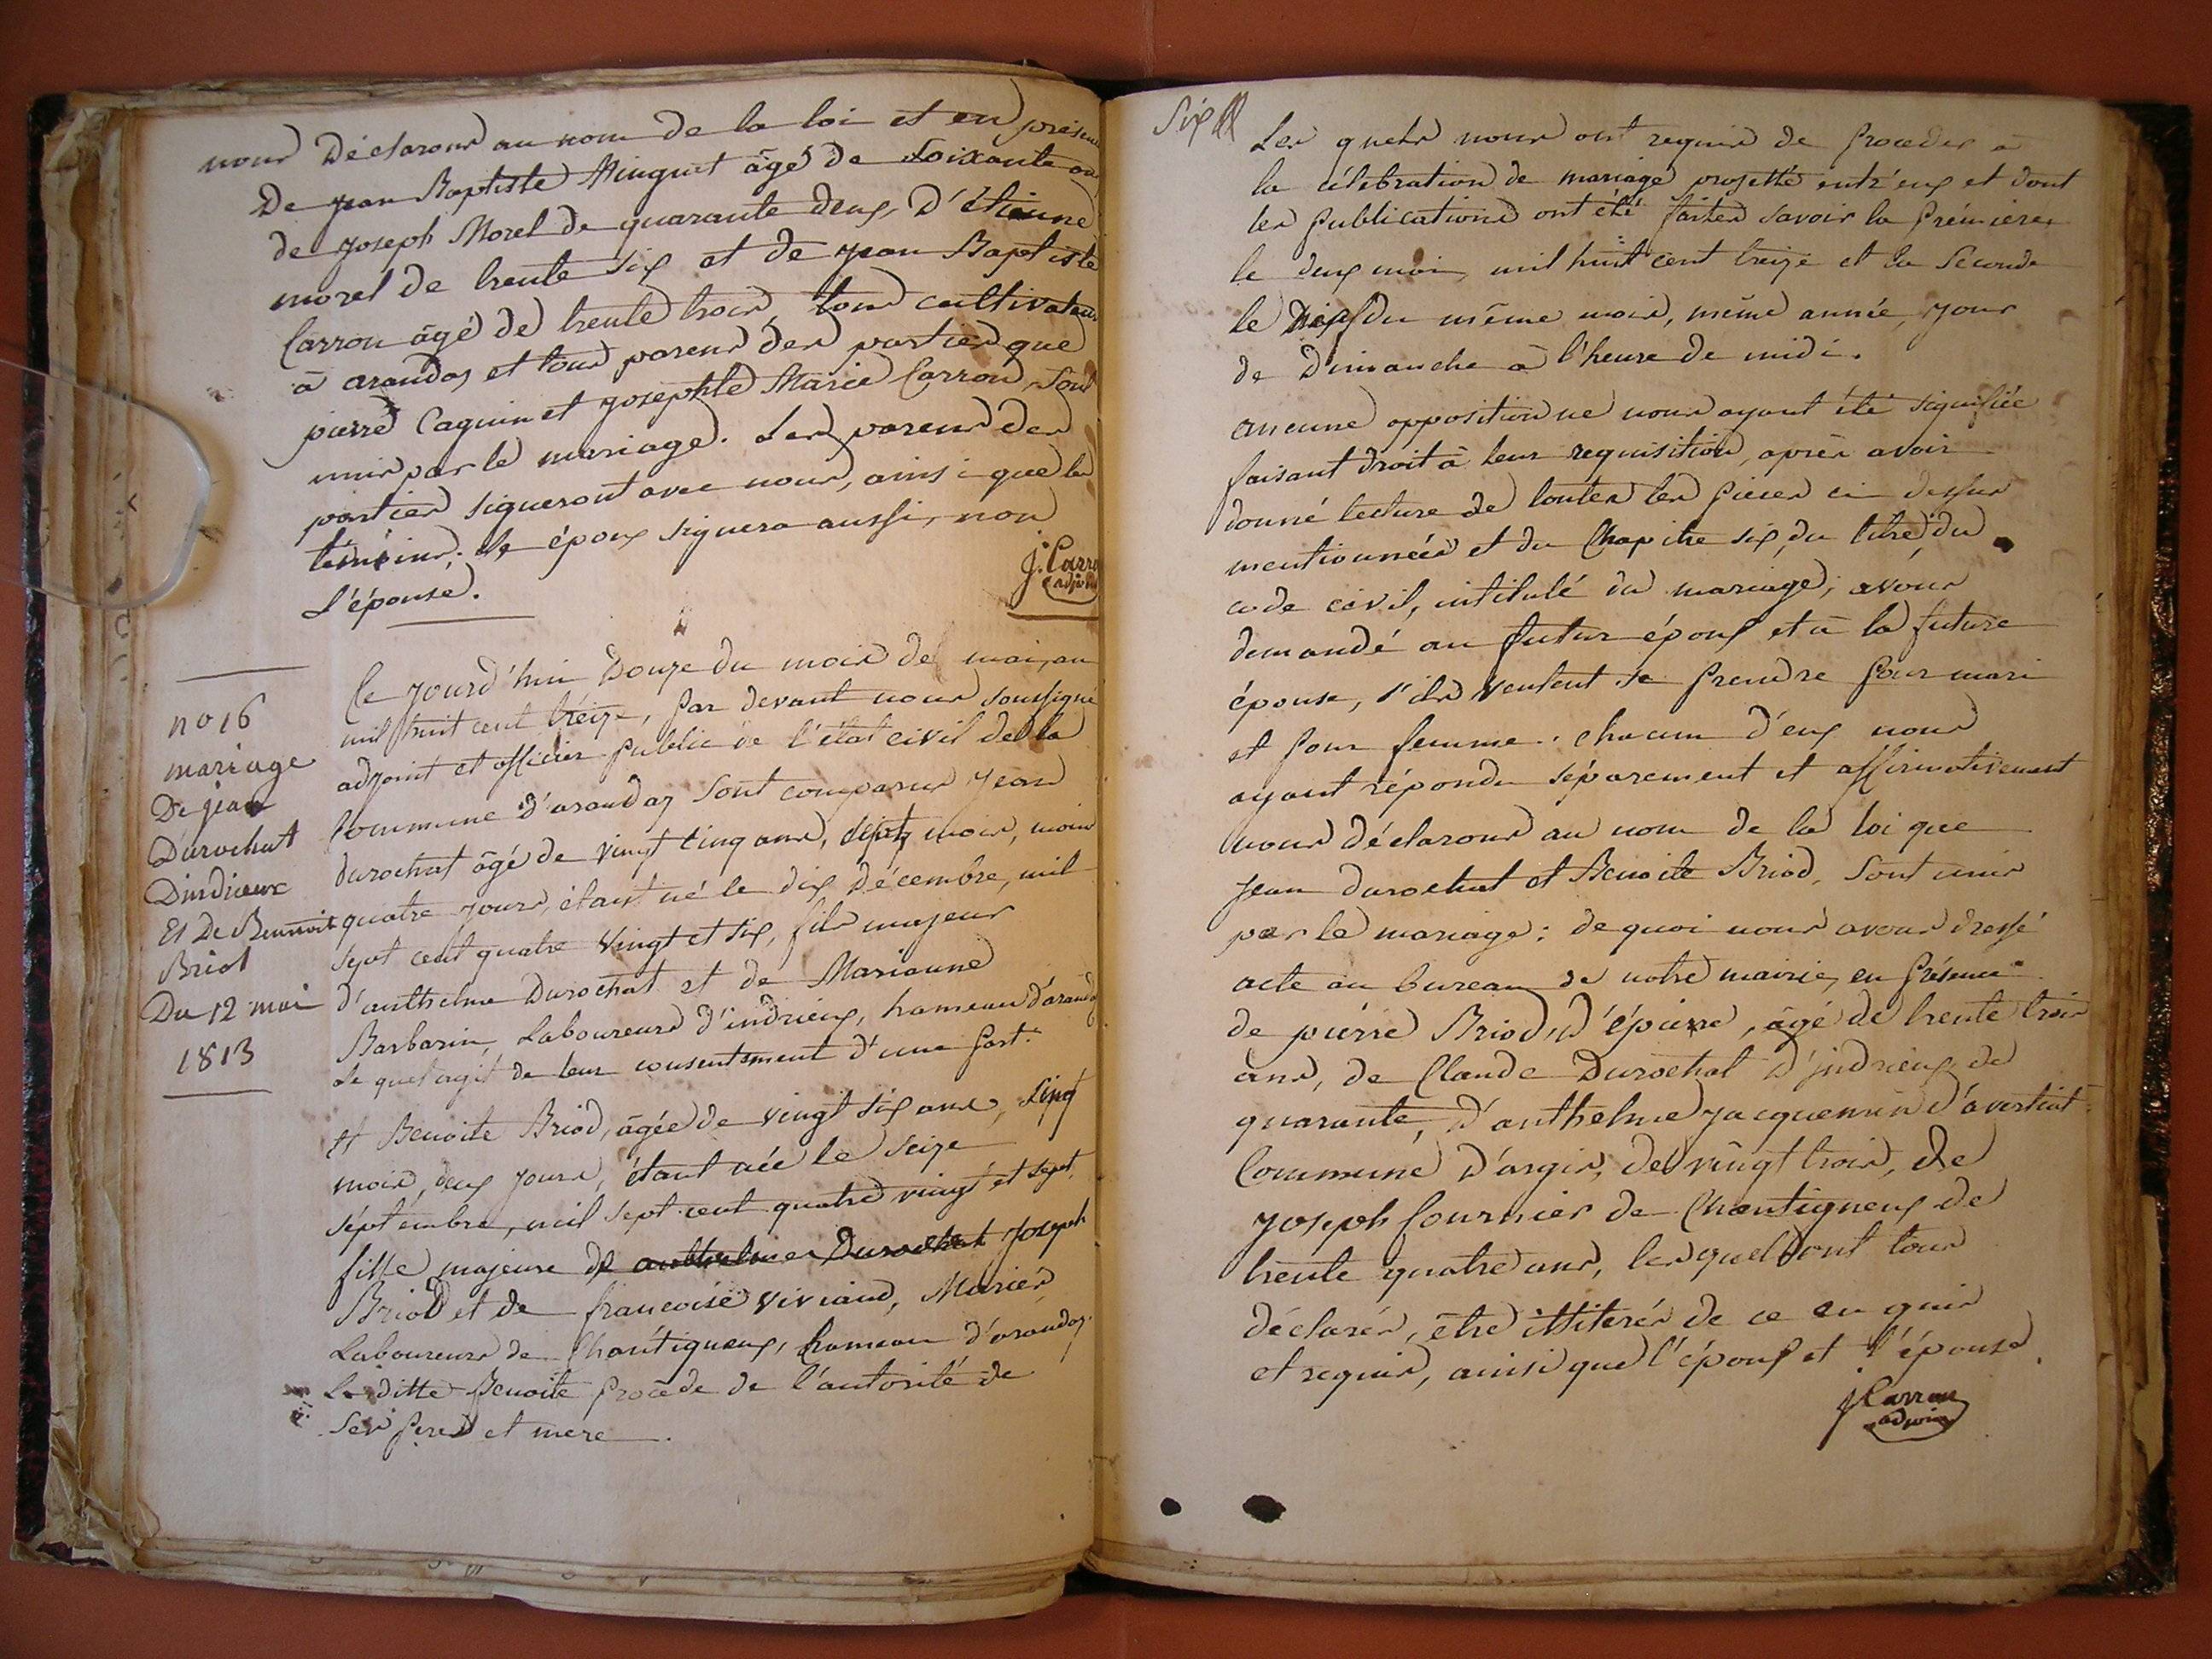 nous Déclarons au nom de la loi et en présence
De jean Baptiste Minguet âgé de soixante ans
de joseph Morel de quarante deux, D'étienne
morel de trente six et de jean Baptiste
Carron âgé de trente trois, tous cultivateurs
à arandas et tous parens des parties que
pierre Caguin et josephte Marie Carron, sont
unis par le mariage. Les parens des
parties signeront avec nous, ainsi que les
témoins; le époux signera aussi, non
L'épouse.
J. Carron
adjoint
no 16
mariage
De jean
Durochat
Dindrieux
Et De Bennoite
Briod
Du 12 mai
1813
Ce jourd'hui Douze du mois de mai, an
mil huit cent treize, par devant nous soussigné
adjoint et officier public de l'état civil de la
Commune d'arandas sont comparus jean
durochat âgé de vingt cinq ans, mois, moins
quatre jours, étant né le dix Décembre, mil
sept cent quatre vingt et six, fils majeur
d'anthelme Durochat et de Marianne
Barbarin, Laboureurs d'indrieux, hameau d'arandas
Le quel agit de leur consentement d'une part.
Et Benoite Briod, âgée de vingt six ans, Cinq
mois, deux jours, étant née le seize
séptembre, mil sept cent quatre vingt et sept,
fille majeure de anthelme Durochat joseph
Briod et de francoise viviand, Mariés,
Laboureurs de Chantigneux, hameau d'arandas.
La ditte Benoite procède de l'autorité de
ses pere et mere.
Six
Les quels nous ont requis de proceder à
la célebration de mariage projetté entr'eux et dont
les publications ont été faites savoir la première,
le deux mai, mil huit cent treize et la seconde
le du même mois, même année, jour
de Dimanche à l'heure de midi.
aucune opposition ne nous ayant été signifiée
faisant droit à leur requisition, après avoir
donné lecture de toutes les pieces ci dessus
mentionnées et du Chapitre six, du titre du
code civil, intitulé du mariage; avons
demandé au futur époux et à la future
épouse, s'ils veulent se prendre pour mari
et pour femme. chacun d'eux nous
ayant répondu séparement et affirmativement
nous déclarons au nom de la loi que
jean durochat et Benoite Briod, sont unis
par le mariage: de quoi nous avons dressé
acte au bureau de notre mairie, en présence
de piérre Briod, d'épierre, âgé de trente trois
ans, de Claude Durochat d'indrieux de
quarante, D'anthelme jacquemin d'averliat
Commune D'argis, de vingt trois, de
joseph fournier de Chantigneux de
trente quatre ans, les quels ont tous
déclarés, être illiterés de ce enquis
et requis, ainsi que l'époux et l'épouse.
J Carron
adjoint